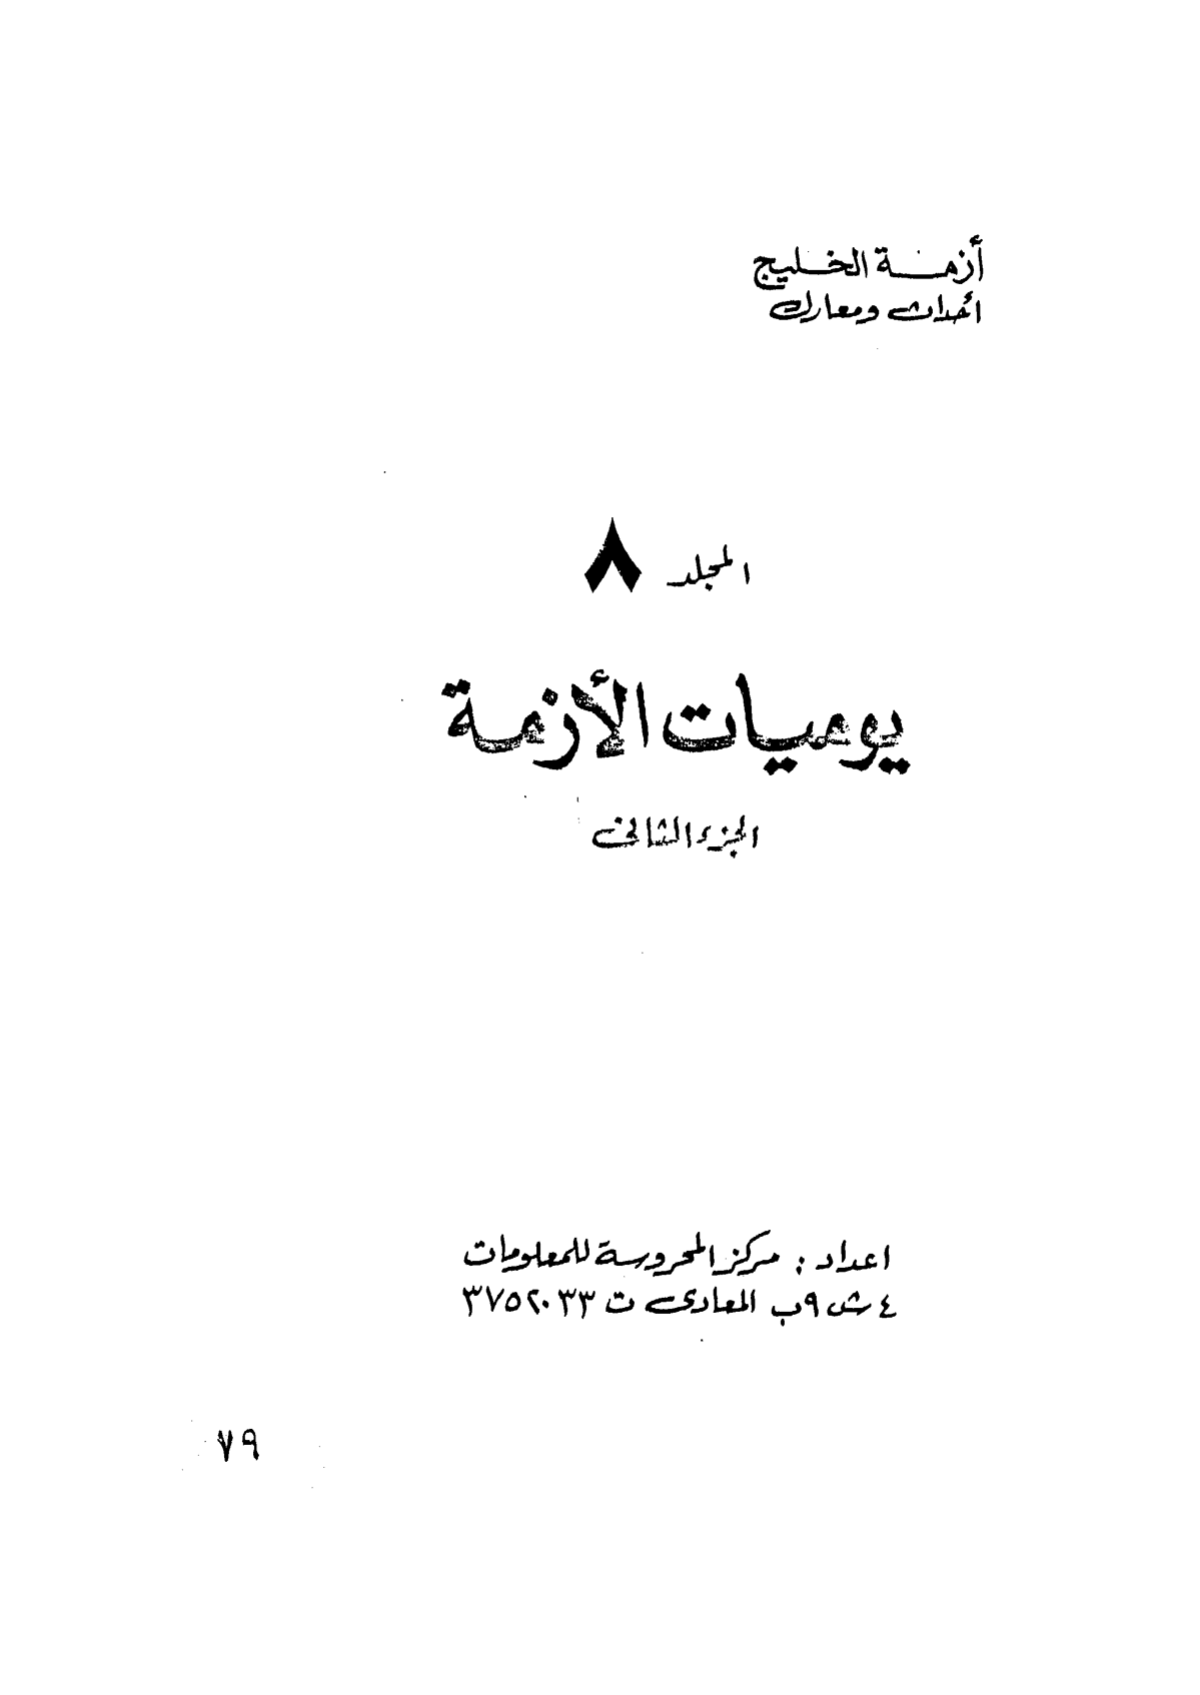 أزمة الخليج
أحداث ومعارك
المجلد ٨
يوميات الأزمة
الجزء الثانى
اعداد : مركز المحروسة للمعلومات
٤ ش ٩ب المعادى ت ٣٧٥٢٠٣٣
٧٩